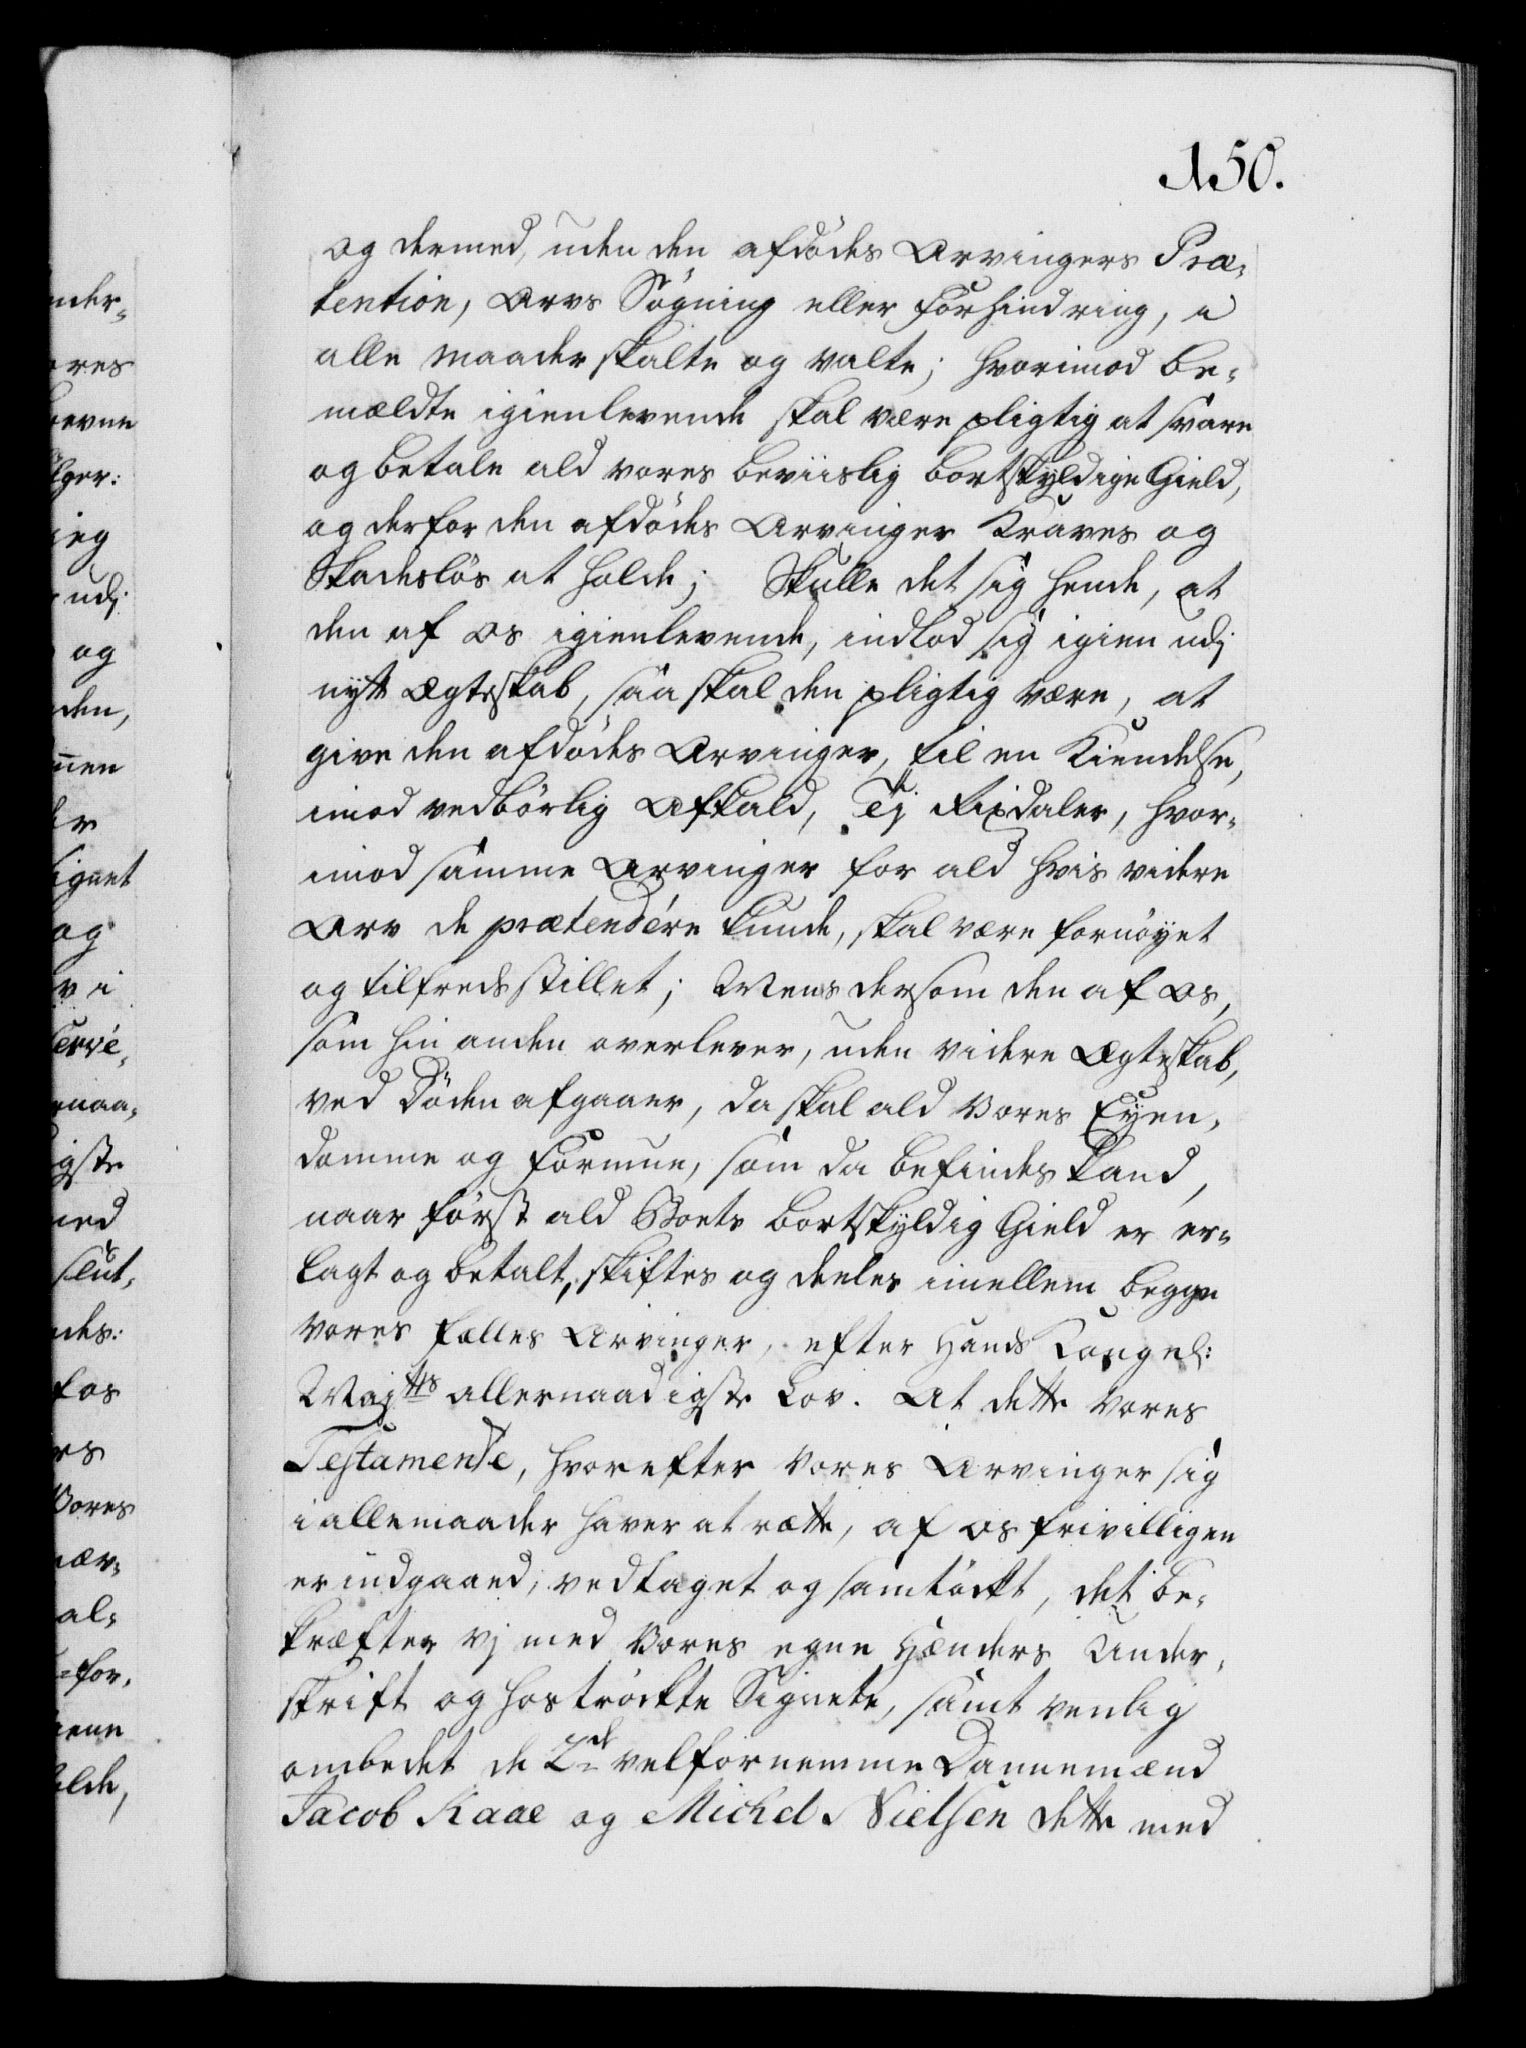 150.
og dermed, uden den afdödes Arvingers Præ-
tention, Arvs Sögning eller Forhindring, i
alle maader skalte og valte; hvorimod be-
mældte igienlevende skal være pligtig at svare
og betale ald vores beviislig bortskyldige Gield,
og derfor den afdödes Arvinger Kraves og
Skadeslös at holde; Skulle det sig hende, at
den af os igienlevende, indlod sig igien udj
nytt Ægteskab, saa skal den pligtig være, at
give den afdödes Arvinger, til en Kiendelse,
imod vedbörlig Afkald, Tj Rixdaler, hvor-
imod samme Arvinger for ald hvis videre
Arv de prætendére kunde, skal være fornöyet
og tilfredsstillet; Mens dersom den af os,
som hin anden overlever, uden videre Ægteskab,
ved Döden afgaaer, da skal ald Vores Eyen-
domme og Formue, som da befindes kand,
naar först ald Boets bortskyldig Gield er er-
lagt og betalt, skiftes og deeles imellem begge
vores fælles Arvinger, efter Hands Kongel:
Majtts allernaadigste Lov. At dette Vores
Testamente, hvorefter Vores Arvinger sig
i alle maader haver at rætte, af os frivilligen
er indgaaed, vedtaget og samtöckt, det be-
kræfter vj med Vores egne Hænders Under-
skrift og hoströckte Signete, samt venlig
ombedet de 2de velfornemme Dannemænd
Jacob Kaae og Michel Nielsen dette med